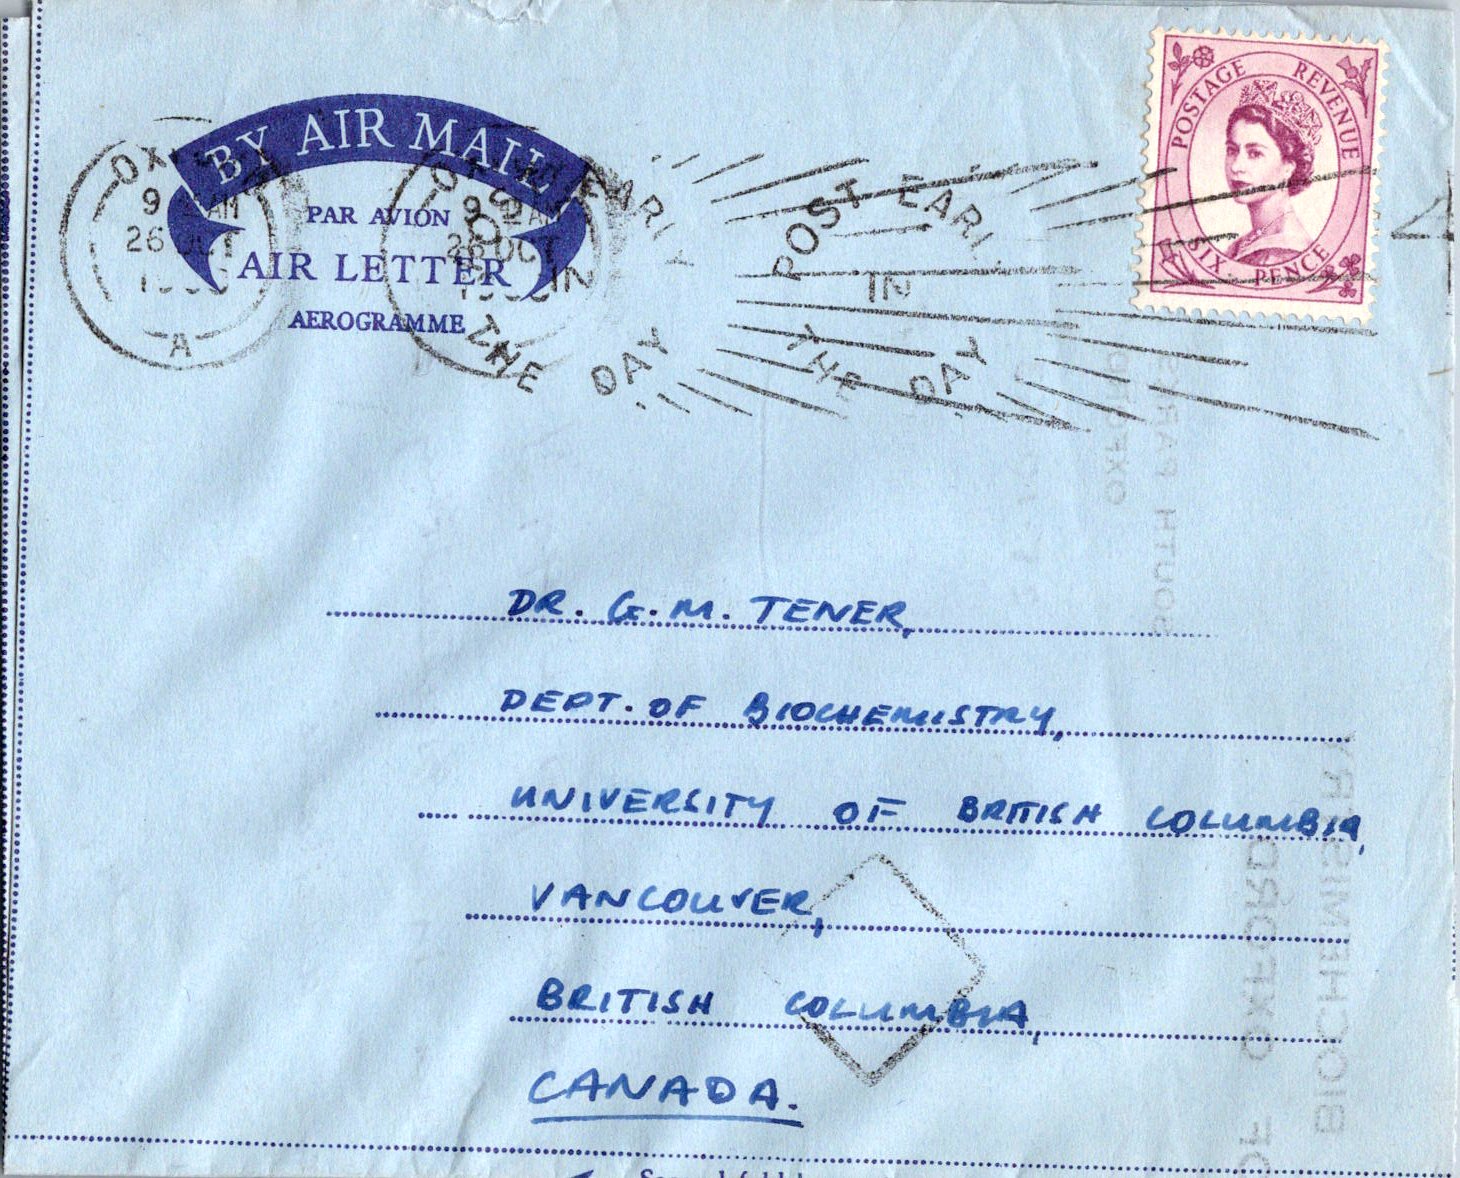 BY AIR MAIL
PAR AVION
AIR LETTER
AEROGRAMME
9 AM
26 OCT
A
9 AM
26 OCT
POST EARLY
IN
THE DAY
POST EARLY
IN
THE DAY
POSTAGE REVENUE
SIX PENCE
DR. G. M. TENER,
DEPT. OF BIOCHEMISTRY,
UNIVERSITY OF BRITISH COLUMBIA,
VANCOUVER,
BRITISH COLUMBIA,
CANADA.
SOUTH PARKS
OXFORD
BIOCHEMISTRY
OF OXFORD